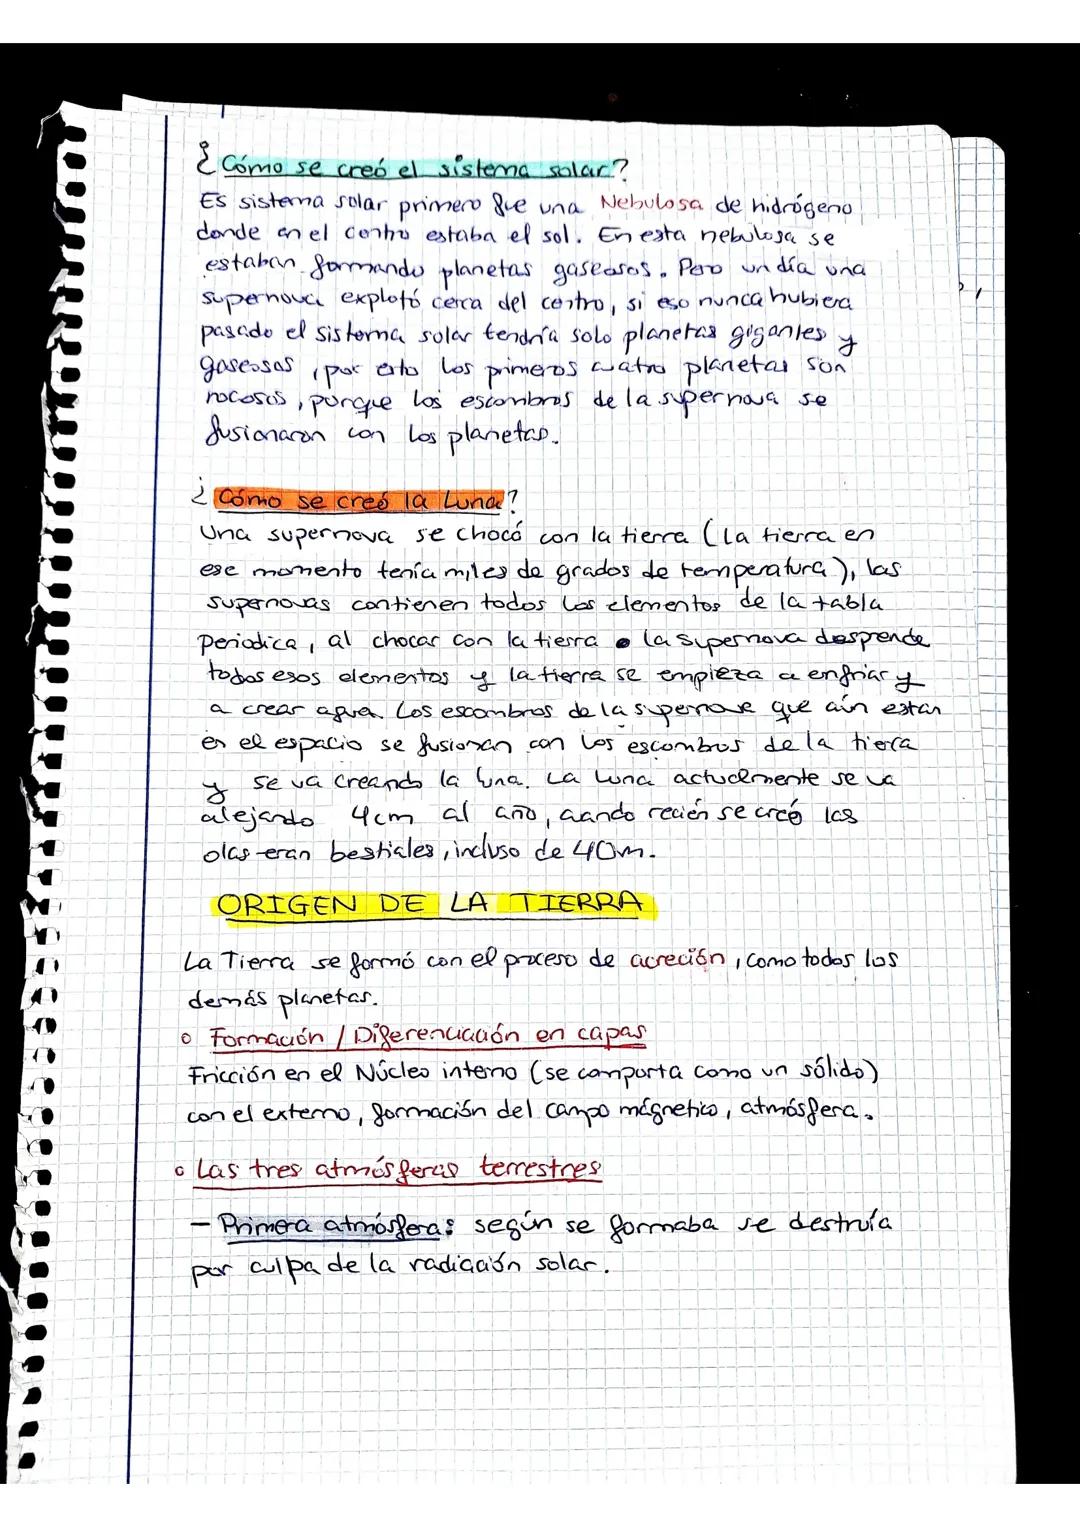 ¿Cómo se creó el sistema solar?
Es sistema solar primero fue una Nebulosa de hidrógeno
donde en el centro estaba el sol. En esta nebulosa se
estaban formando planetas gaseosos. Pero un día una
supernova explotó cerca del centro, si eso nunca hubiera
pasado el sistema solar tendría solo planetas gigantes y
gaseosos, por esto los primeros cuatro planetas son
rocosos, porque los escombros de la supernova se
fusionaron con los planetas.
¿Cómo se creó la Luna?
Una supernova se chocó con la tierra (La tierra en
ese momento tenía miles de grados de temperatura), las
supernovas contienen todos los elementos de la tabla
periodica, al chocar con la tierra la supernova desprende
todos esos elementos y la tierra se empieza a enfriar y
a crear agua. Los escombros de la supernova que aún están
en el espacio se fusionan con los escombros de la tierra
y se va creando la luna. La Luna actualmente se va
alejando 4cm al año, cuando recién se creó las
olas eran bestiales, incluso de 40m.
ORIGEN DE LA TIERRA
La Tierra se formó con el proceso de acreción, como todos los
demás planetas.
o Formación / Diferenciación en capas
Fricción en el Núcleo interno (se comporta como un sólido)
con el externo, formación del campo mágnetico, atmósfera.
o Las tres atmósferas terrestres
- Primera atmósfera: según se formaba se destruía
por culpa de la radiación solar.